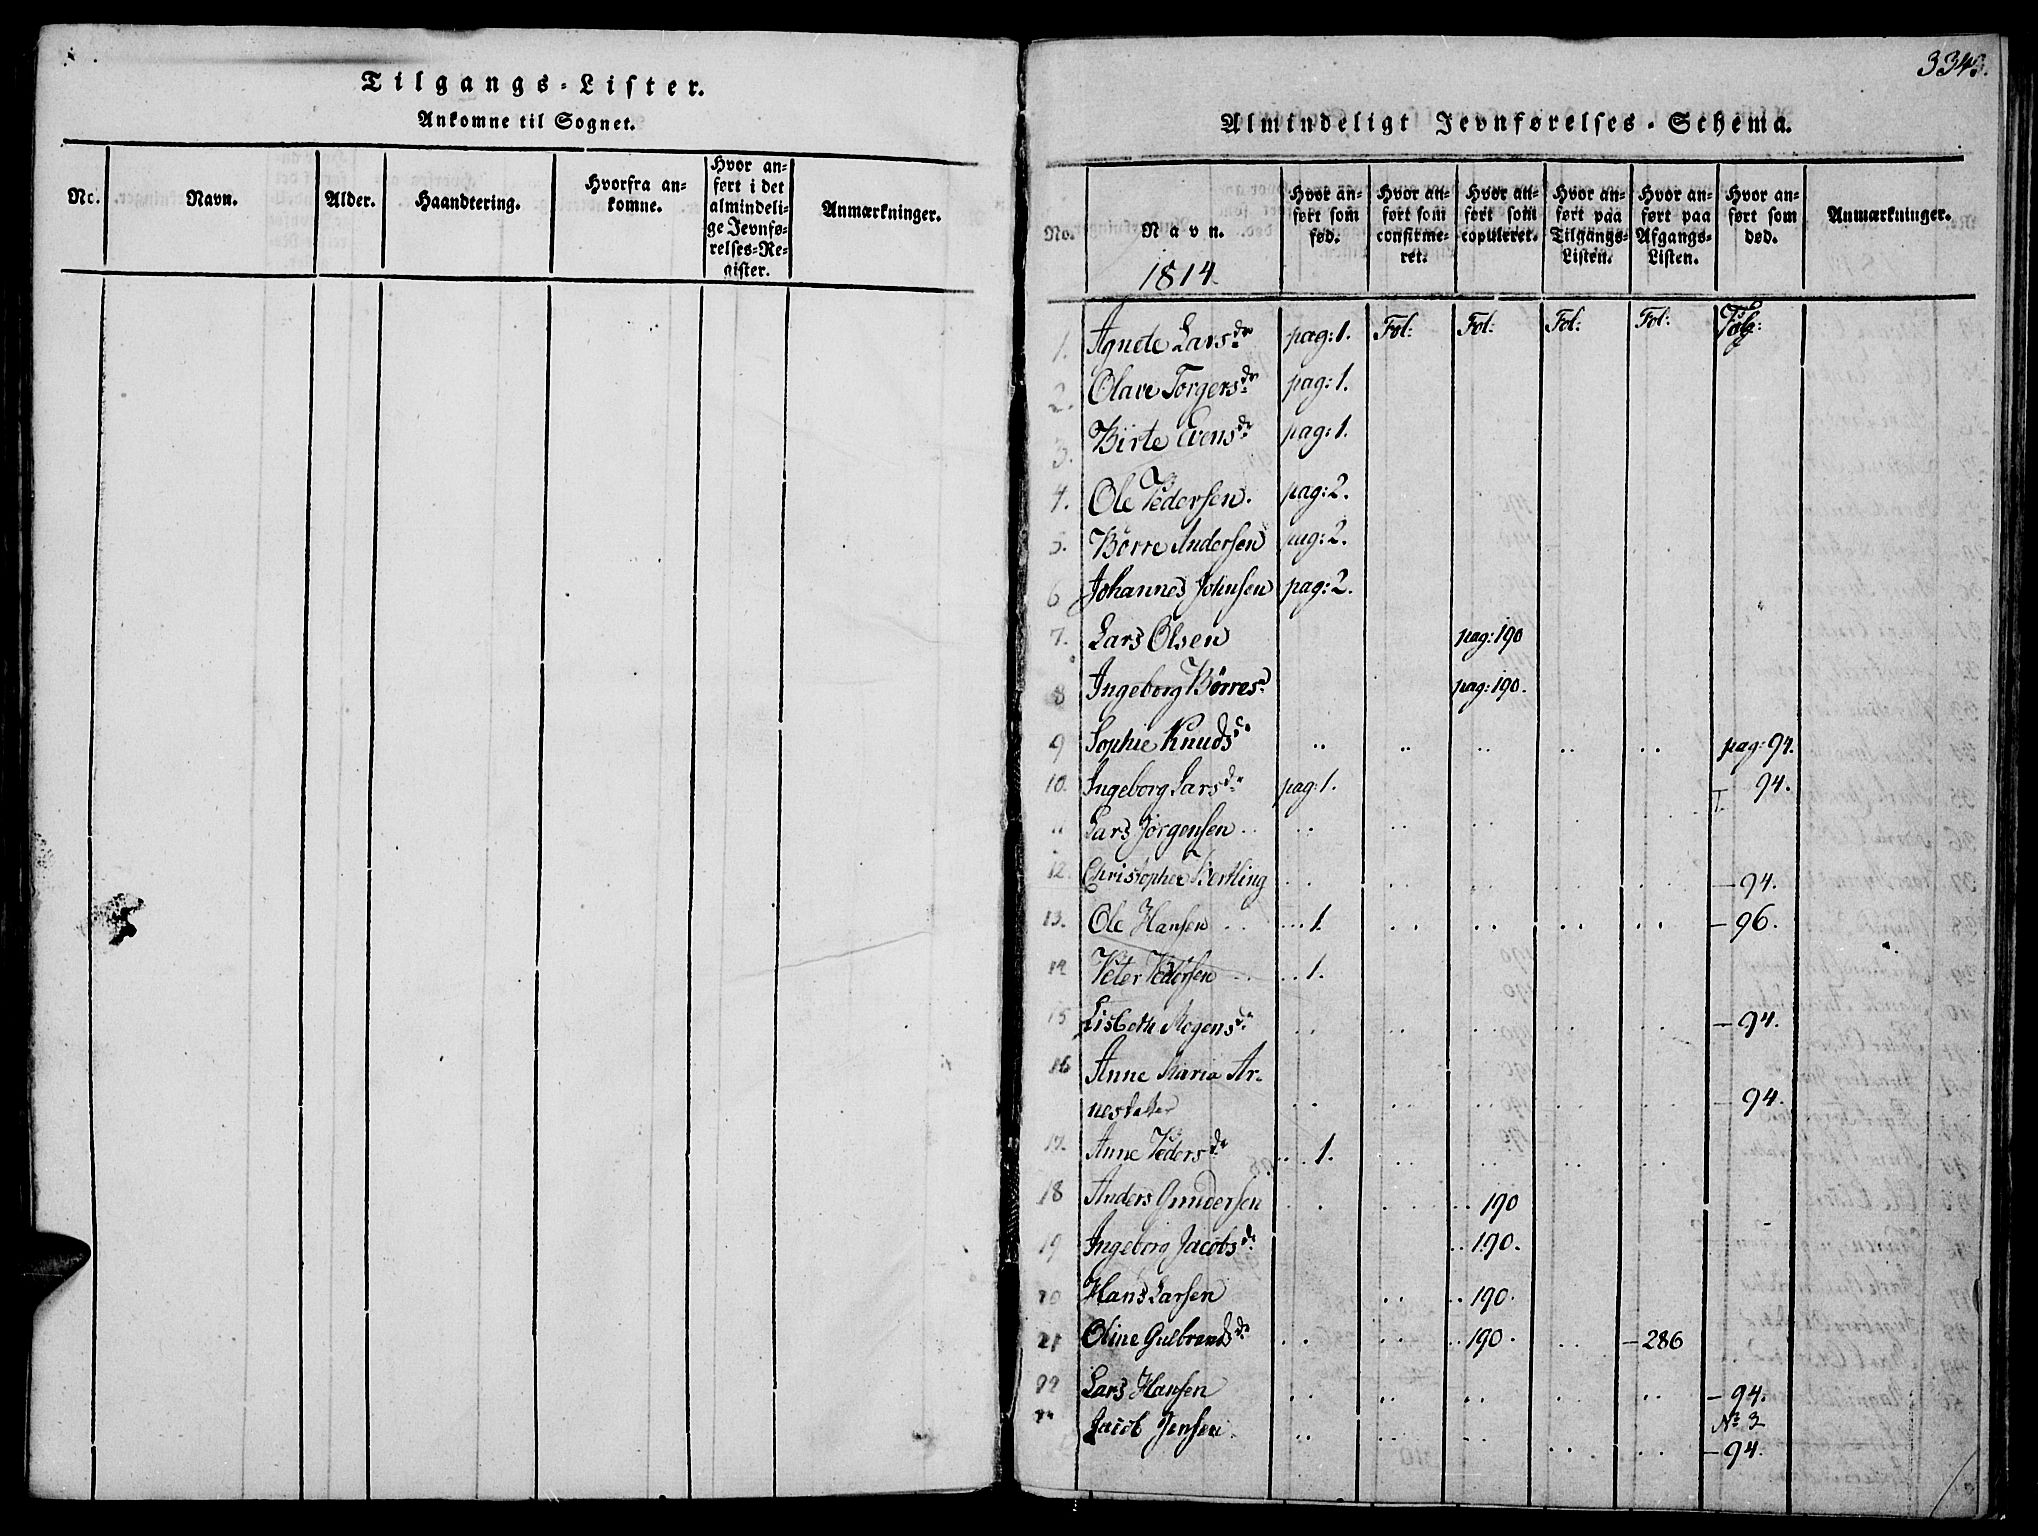 Tilgangs-Lister.
Ankomne til Sognet.
No. Navn. Alder. Haandtering. Hvorfra ankomne. Hvor anført i det almindelige Jevnførelses-Register. Anmærkninger.
334
Almindeligt Jevnførelses-Schema.
No. Navn. Hvor anført som fød. Hvor anført som confirmeret. Hvor anført som copuleret. Hvor anført paa Tilgangs-Listen. Hvor anført paa Afgangs-Listen. Hvor anført som død. Anmærkninger.
1814.
1. Agnete Larsdr pag: 1. Fol: Fol: Fol: Fol:
2. Olave Torgersdr pag: 1.
3. Birte Evensdr pag: 1.
4. Ole Pedersen. pag: 2.
5. Börre Andersen pag: 2.
6 Johannes Johnsen pag: 2.
7. Lars Olsen pag: 190
8 Ingeborg Börresd pag: 190.
9 Sophie Knuds pag: 94.
10. Ingeborg Larsdr pag: 1. 94.
Lars Jörgensen
12. Christopher Bertling — 94.
13. Ole Hansen 1. — 96.
14 Peter Pedersen 1.
15 Lisbeth Mogensdr — 94.
16 Anne Maria Ar-
94.
17. Anne Pedersdr 1.
18 Anders Gundersen 190
19 Ingeborg Jacobsdr 190.
20 Hans Larsen 190.
21 Oline Gulbrandsdr 190. — 286
22 Lars Hansen — 94.
No 3
Jacob Jensen — 94.